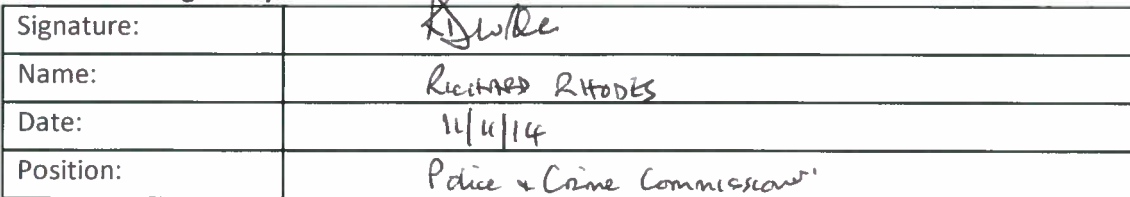 Signature:
Name: RICHARD RHODES
Date: 11/4/14
Position: Police & Crime Commissioner